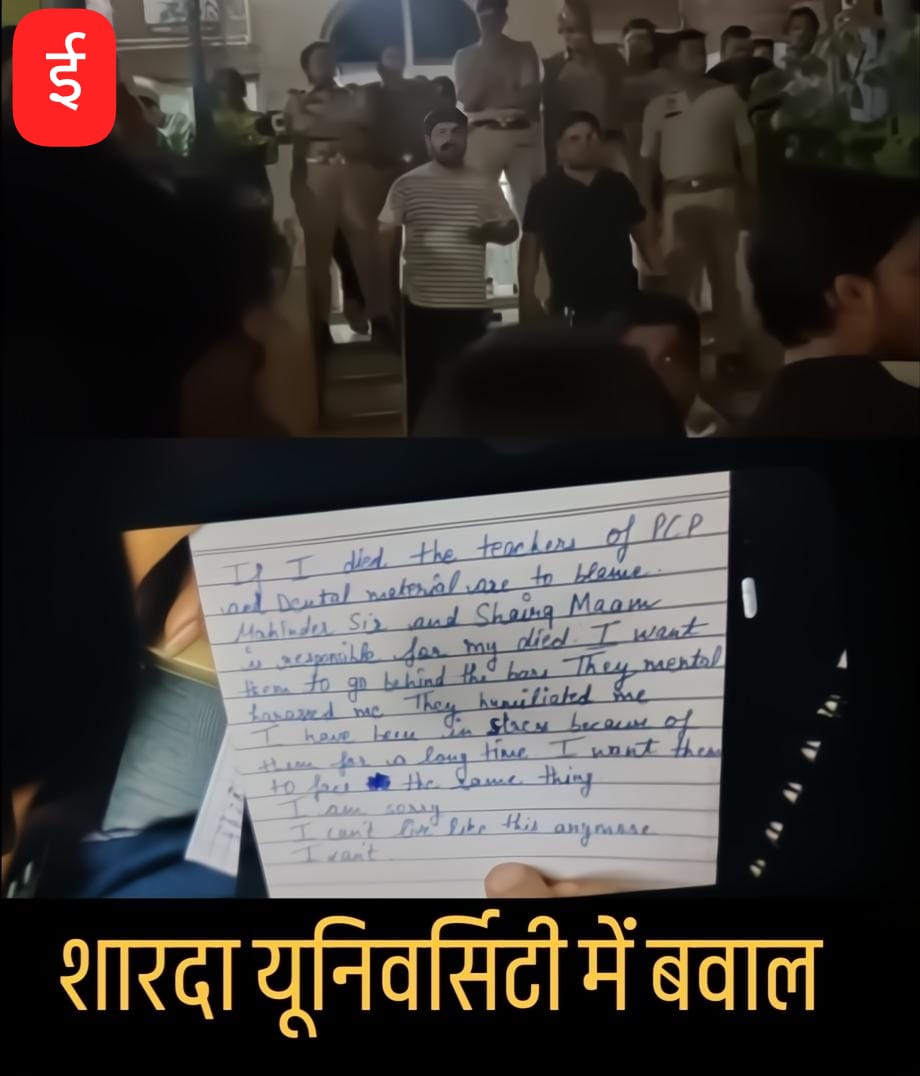 ई
If I died the teachers of PCP
and Dental material are to blame.
Mahinder Sir and Shairq Maam
is responsible for my died. I want
them to go behind the bars They mental
harassed me They humiliated me
I have been in stress because of
them for a long time I want them
to face the same thing
I am sorry
I can't live like this anymore
I can't
शारदा यूनिवर्सिटी में बवाल